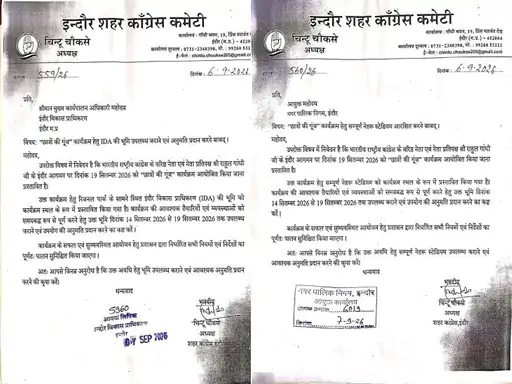 इन्दौर शहर काँग्रेस कमेटी
चिन्टू चौकसे
अध्यक्ष
कार्यालय : गाँधी भवन,
इन्दौर (म.प्र.) - 4520
कार्यालय दूरभाष : 0731-2340398, मो. : 99260 53
ई-मेल : chintu.chouksey205@gmail.com
क्रमांक 559/26
दिनांक : 6-9-2026
प्रति,
श्रीमान मुख्य कार्यपालन अधिकारी महोदय
इंदौर विकास प्राधिकरण
इंदौर म.प्र
विषय: "छात्रों की गूंज" कार्यक्रम हेतु IDA की भूमि उपलब्ध कराने एवं अनुमति प्रदान करने बाबद्।
महोदय,
उपरोक्त विषय में निवेदन है कि भारतीय राष्ट्रीय कांग्रेस के वरिष्ठ नेता एवं नेता प्रतिपक्ष श्री राहुल गांधी
जी के इंदौर आगमन पर दिनांक 19 सितम्बर 2026 को "छात्रों की गूंज" कार्यक्रम आयोजित किया जाना
प्रस्तावित है।
उक्त कार्यक्रम हेतु रिजनल पार्क के सामने स्थित इंदौर विकास प्राधिकरण (IDA) की भूमि को
कार्यक्रम स्थल के रूप में प्रस्तावित किया गया है। कार्यक्रम की आवश्यक तैयारियों एवं व्यवस्थाओं को
समयबद्ध रूप से पूर्ण करने हेतु उक्त भूमि दिनांक 14 सितम्बर 2026 से 19 सितम्बर 2026 तक उपलब्ध
कराने एवं उपयोग की अनुमति प्रदान करने का कष्ट करें।
कार्यक्रम के सफल एवं सुव्यवस्थित आयोजन हेतु प्रशासन द्वारा निर्धारित सभी नियमों एवं निर्देशों का
पूर्णतः पालन सुनिश्चित किया जाएगा।
अतः आपसे विनम्र अनुरोध है कि उक्त अवधि हेतु भूमि उपलब्ध कराने एवं आवश्यक अनुमति प्रदान
करने की कृपा करें।
धन्यवाद
भवदीय
चिन्टू चौकसे
अध्यक्ष
शहर कांग्रेस, इंदौर
5960
आवक लिपिक
इन्दौर विकास प्राधिकरण
इन्दौर
07 SEP 2026
इन्दौर शहर काँग्रेस कमेटी
चिन्टू चौकसे
अध्यक्ष
कार्यालय : गाँधी भवन, 19,
इंदौर (म.प्र.) - 452004
कार्यालय दूरभाष : 0731-2340398, मो. : 99260 53111
ई-मेल : chintu.chouksey205@gmail.com
क्रमांक 560/26
दिनांक : 6-9-2026
प्रति,
आयुक्त महोदय
नगर पालिक निगम, इंदौर
विषय: "छात्रों की गूंज" कार्यक्रम हेतु सम्पूर्ण नेहरू स्टेडियम आरक्षित करने बाबद्।
महोदय,
उपरोक्त विषय में निवेदन है कि भारतीय राष्ट्रीय कांग्रेस के वरिष्ठ नेता एवं नेता प्रतिपक्ष श्री राहुल गांधी
जी के इंदौर आगमन पर दिनांक 19 सितम्बर 2026 को "छात्रों की गूंज" कार्यक्रम आयोजित किया जाना
प्रस्तावित है।
उक्त कार्यक्रम हेतु सम्पूर्ण नेहरू स्टेडियम को कार्यक्रम स्थल के रूप में प्रस्तावित किया गया है।
कार्यक्रम की आवश्यक तैयारियों एवं व्यवस्थाओं को समयबद्ध रूप से पूर्ण करने हेतु उक्त भूमि दिनांक
14 सितम्बर 2026 से 19 सितम्बर 2026 तक उपलब्ध कराने एवं उपयोग की अनुमति प्रदान करने का कष्ट
करें।
कार्यक्रम के सफल एवं सुव्यवस्थित आयोजन हेतु प्रशासन द्वारा निर्धारित सभी नियमों एवं निर्देशों का
पूर्णतः पालन सुनिश्चित किया जाएगा।
अतः आपसे विनम्र अनुरोध है कि उक्त अवधि हेतु सम्पूर्ण नेहरू स्टेडियम उपलब्ध कराने एवं
आवश्यक अनुमति प्रदान करने की कृपा करें।
धन्यवाद
भवदीय
चिन्टू चौकसे
अध्यक्ष
शहर कांग्रेस, इंदौर
नगर पालिक निगम, इन्दौर
आयुक्त कार्यालय
6019
दिनांक 7-9-26